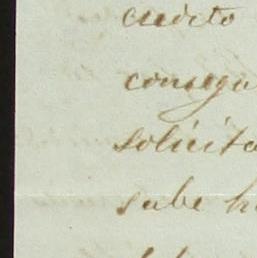 credito
consegu
solicita
sabe h